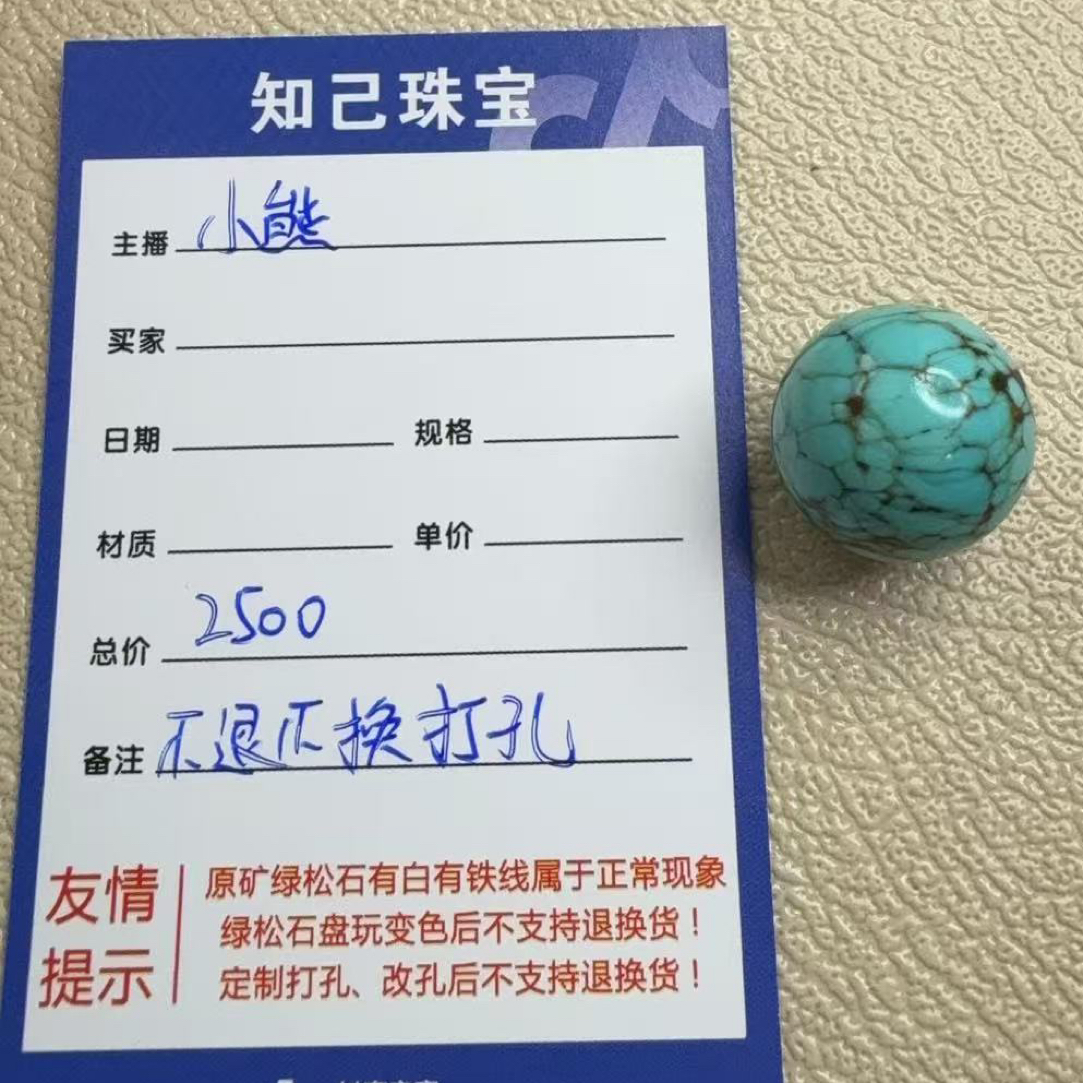 知己珠宝
主播 小熊
买家
日期 规格
材质 单价
总价 2500
备注 不退不换打孔
友情提示
原矿绿松石有白有铁线属于正常现象
绿松石盘玩变色后不支持退换货！
定制打孔、改孔后不支持退换货！